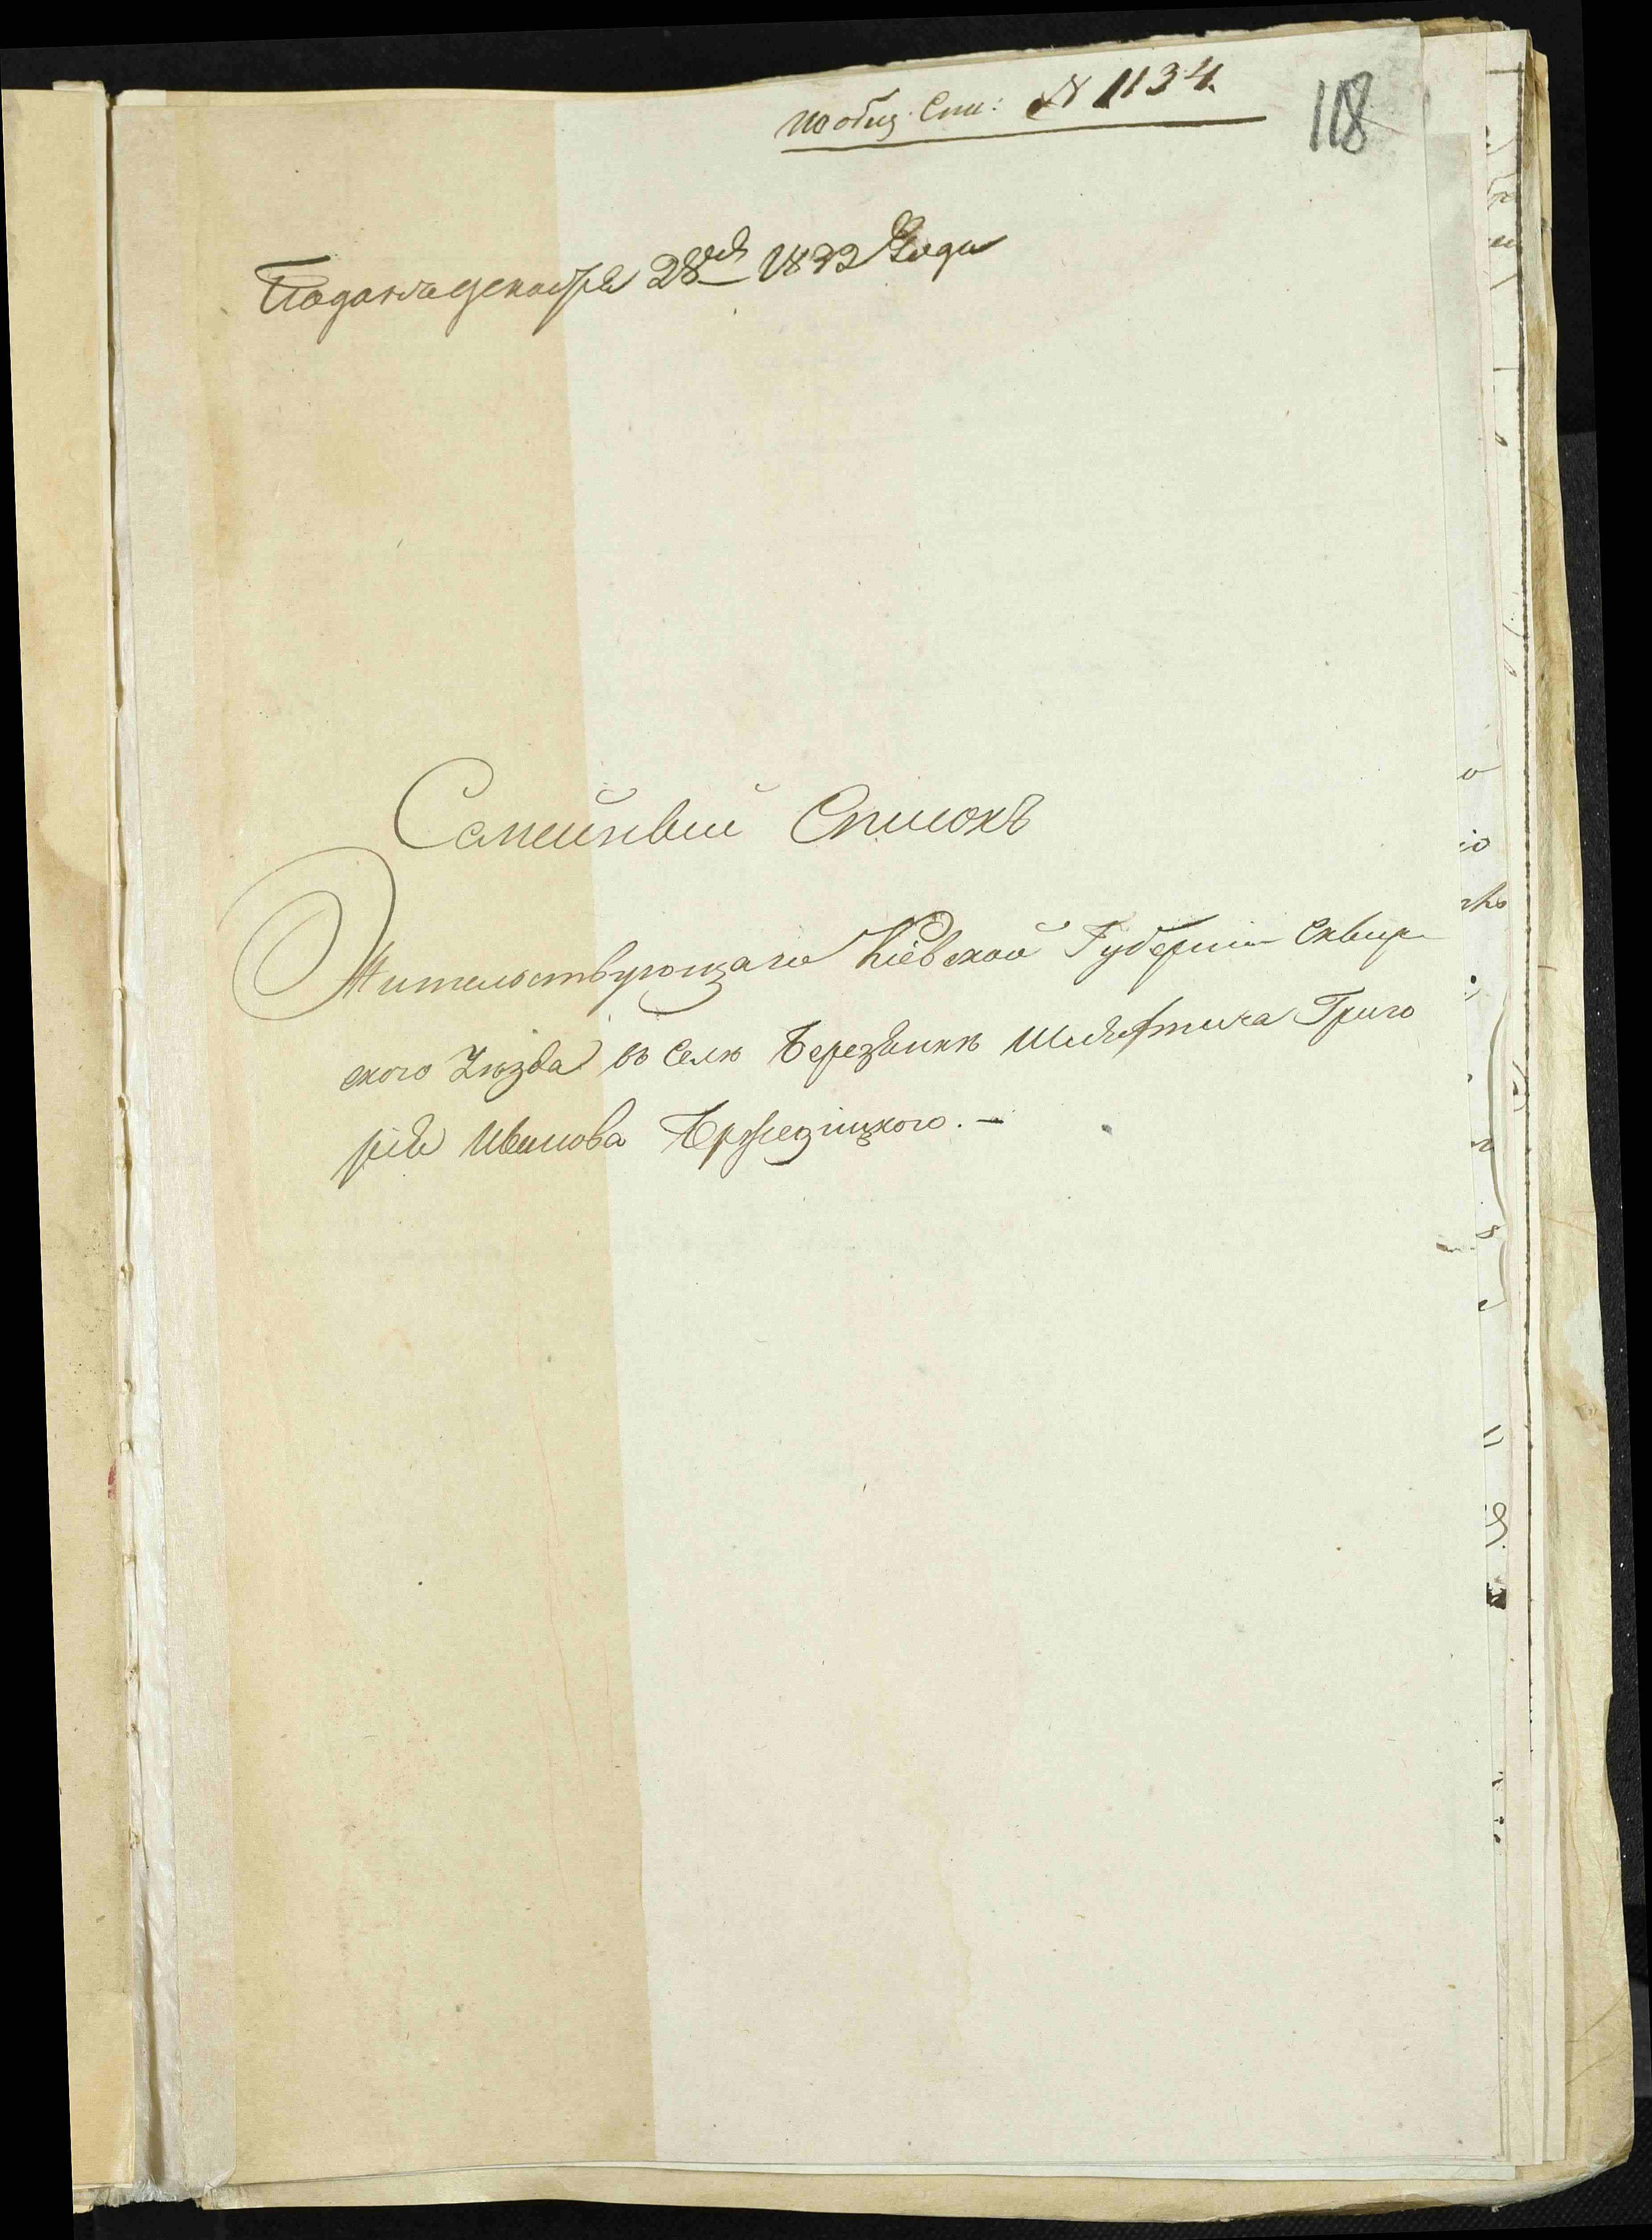 По общ. Спи: № 1134.
118
Подано декабря 28го 1832 Года
Семейный Списокъ
Жительствующаго Кіевской Губерніи Сквир
ского Уѣзда въ Селѣ Березянкѣ Шляхтича Григо
рія Иванова Бржезицкого. —